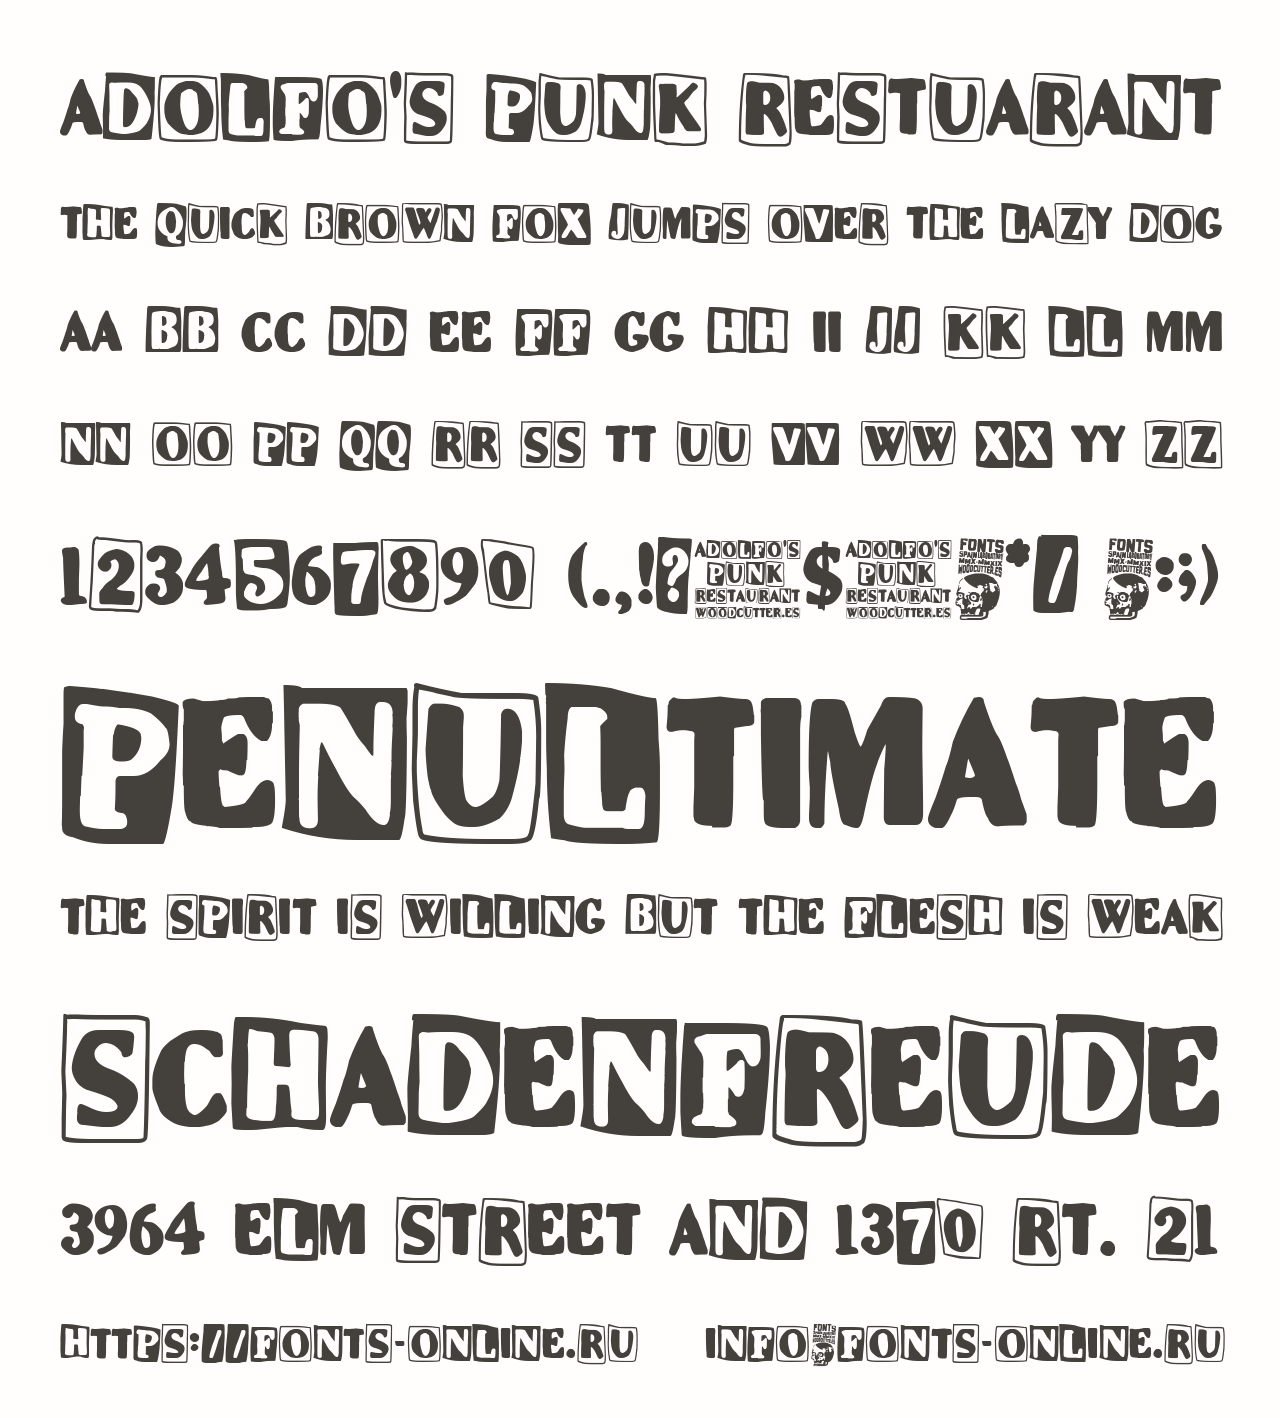 ADOLFO'S PUNK RESTUARANT
THE QUICK BROWN FOX JUMPS OVER THE LAZY DOG
AA BB CC DD EE FF GG HH II JJ KK LL MM
NN OO PP QQ RR SS TT UU VV WW XX YY ZZ
1234567890 (.,!? ADOLFO'S PUNK RESTAURANT WOODCUTTER.ES $ ADOLFO'S PUNK RESTAURANT WOODCUTTER.ES FONTS MMX-MMXIX WOODCUTTER.ES * / FONTS MMX-MMXIX WOODCUTTER.ES :;)
PENULTIMATE
THE SPIRIT IS WILLING BUT THE FLESH IS WEAK
SCHADENFREUDE
3964 ELM STREET AND 1370 RT. 21
HTTPS://FONTS-ONLINE.RU INFO FONTS-ONLINE.RU